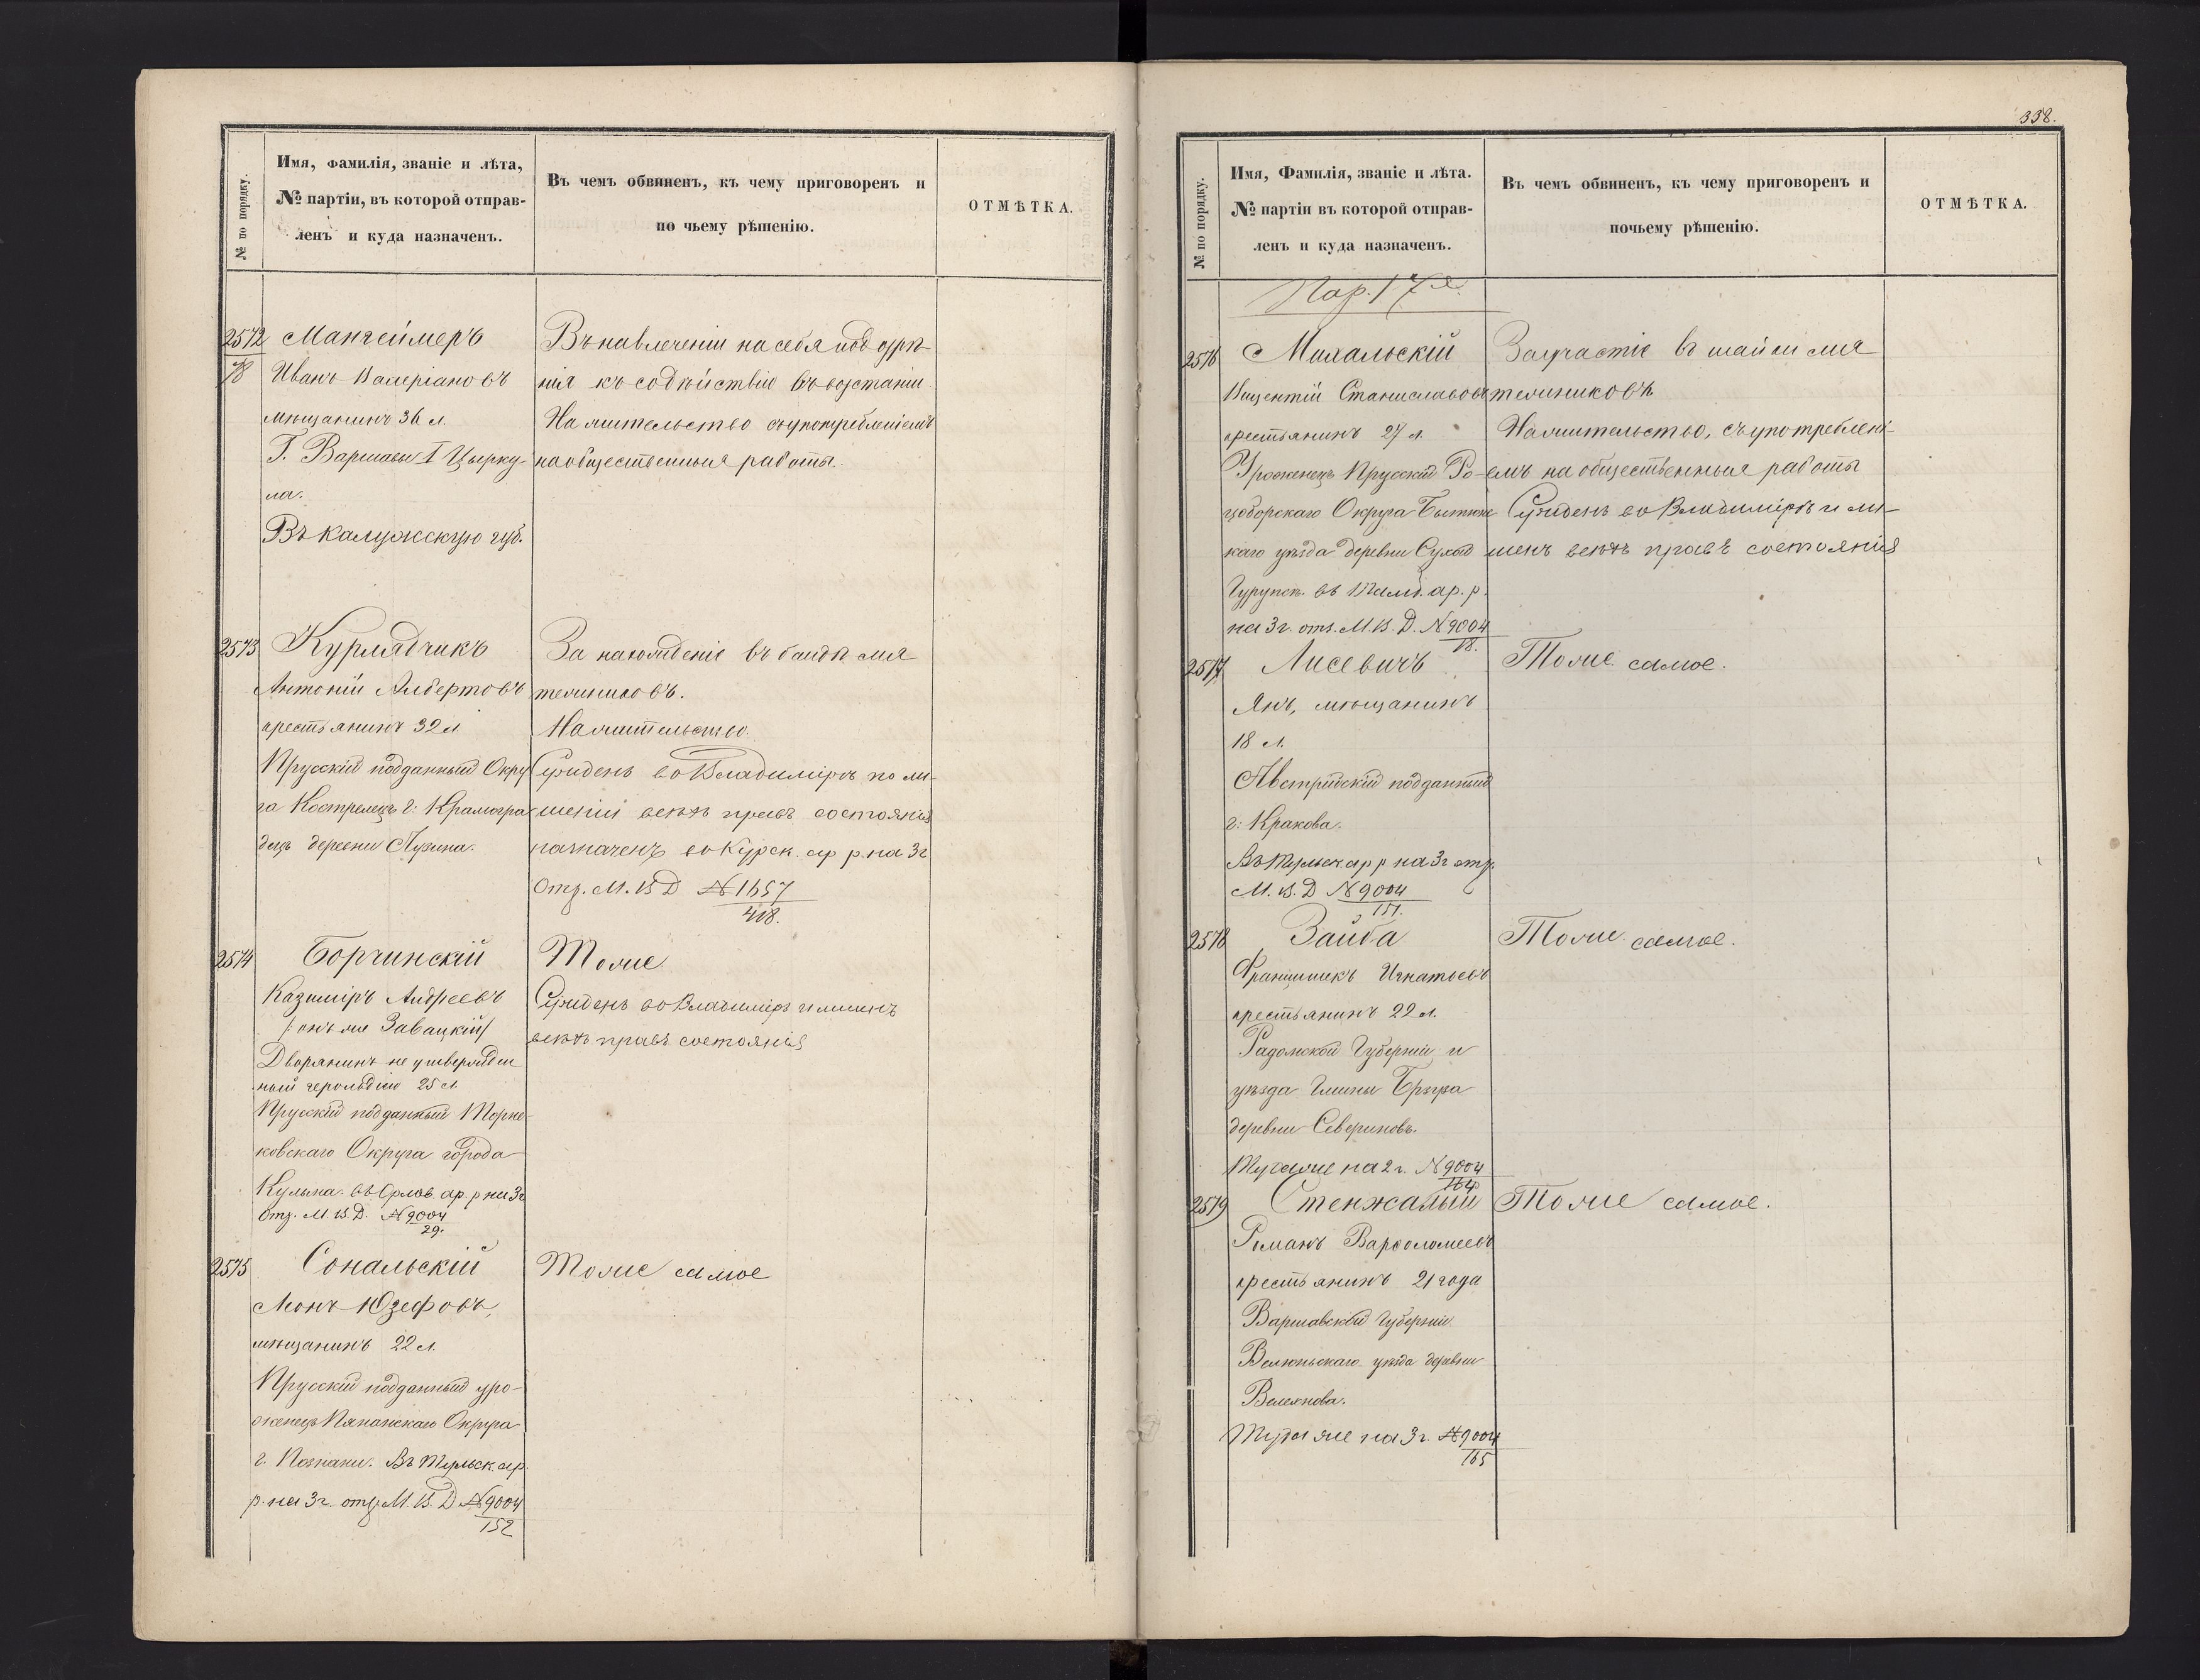 Имя, Фамилія, званіе и лѣта,
№ партіи, въ которой отправ-
ленъ и куда назначенъ.
№ по порядку.
Въ чемъ обвиненъ, къ чему приговоренъ и
по чьему рѣшенію.
ОТМѢТКА.
2572
78
Мангеймеръ
Иванъ Валеріановъ
мѣщанинъ 36 л.
Г. Варшавы I Цырку-
ла.
Въ Калужскую губ.
Въ навлеченіи на себя подозрѣ-
нія къ содѣйствію въ возстаніи.
На жительство съ употребленіемъ
на общественныя работы.
2573
Курлядчикъ
Антоній Албертовъ
крестьянинъ 32 л
Прусскій подданный Окру
га
деревни
За нахожденіе въ бандѣ мя
тежниковъ.
На жительство.
Сужденъ во Владимірѣ по ли-
шеніи всѣхъ правъ состоянія
назначенъ въ Курск. ар р. на 3 г
Отз. М. В Д № 1657
418.
2574
Борчинскій
Казиміръ Андреевъ
/: онъ же Завацкій /
Дворянинъ не утвержден
ный герольдіею 25 л.
Прусскій подданный Торне-
ковскаго Округа города
Кульма. въ Орлов. ар. р на 3 г
Отз. М. В. Д. № 9004
29.
Тоже
Сужденъ во Владимірѣ и лишенъ
всѣхъ правъ состоянія
2575
Сокальскій
Леонъ Юзефовъ,
мѣщанинъ 22 л.
Прусскій подданный уро-
женецъ Округа
г. Познани. Въ Тульск. ар.
р. на 3 г. отз. М. В. Д № 9004
152
Тоже самое
338.
Имя, Фамилія, званіе и лѣта.
№ партіи въ которой отправ-
ленъ и куда назначенъ.
№ по порядку.
Въ чемъ обвиненъ, къ чему приговоренъ и
почьему рѣшенію.
ОТМѢТКА.
Пар. 17я.
2576
Михальскій
Вицентій Станиславовъ
крестьянинъ 27 л.
Уроженецъ Прусскій
Округа
каго уѣзда деревни
въ ар. р.
на 3 г. отз. М. В. Д. № 9004
18.
За участіе въ шайки мя
тежниковъ
На жительство, съ употреблені-
емъ на общественныя работы
Сужденъ во Владимірѣ и ли-
шенъ всѣхъ правъ состоянія
2577
Лисевичъ
Янъ, мѣщанинъ
18 л.
Австрійскій подданный
г: Кракова.
Въ Тульск ар р на 3 г отз.
М. В. Д № 9004
151.
Тоже самое.
2578
Зайба
Францишекъ Игнатьевъ
крестьянинъ 22 л.
Радомской Губерніи и
уѣзда Гмины
деревни Севериновъ.
Туда же на 2 г. № 9004
164
Тоже самое.
2579
Стенжалый
Романъ Варфоломеевъ
крестьянинъ 21 года
Варшавской Губерніи
Велюньскаго уѣзда деревни
Туда же на 3 г. № 9004
165
Тоже самое.